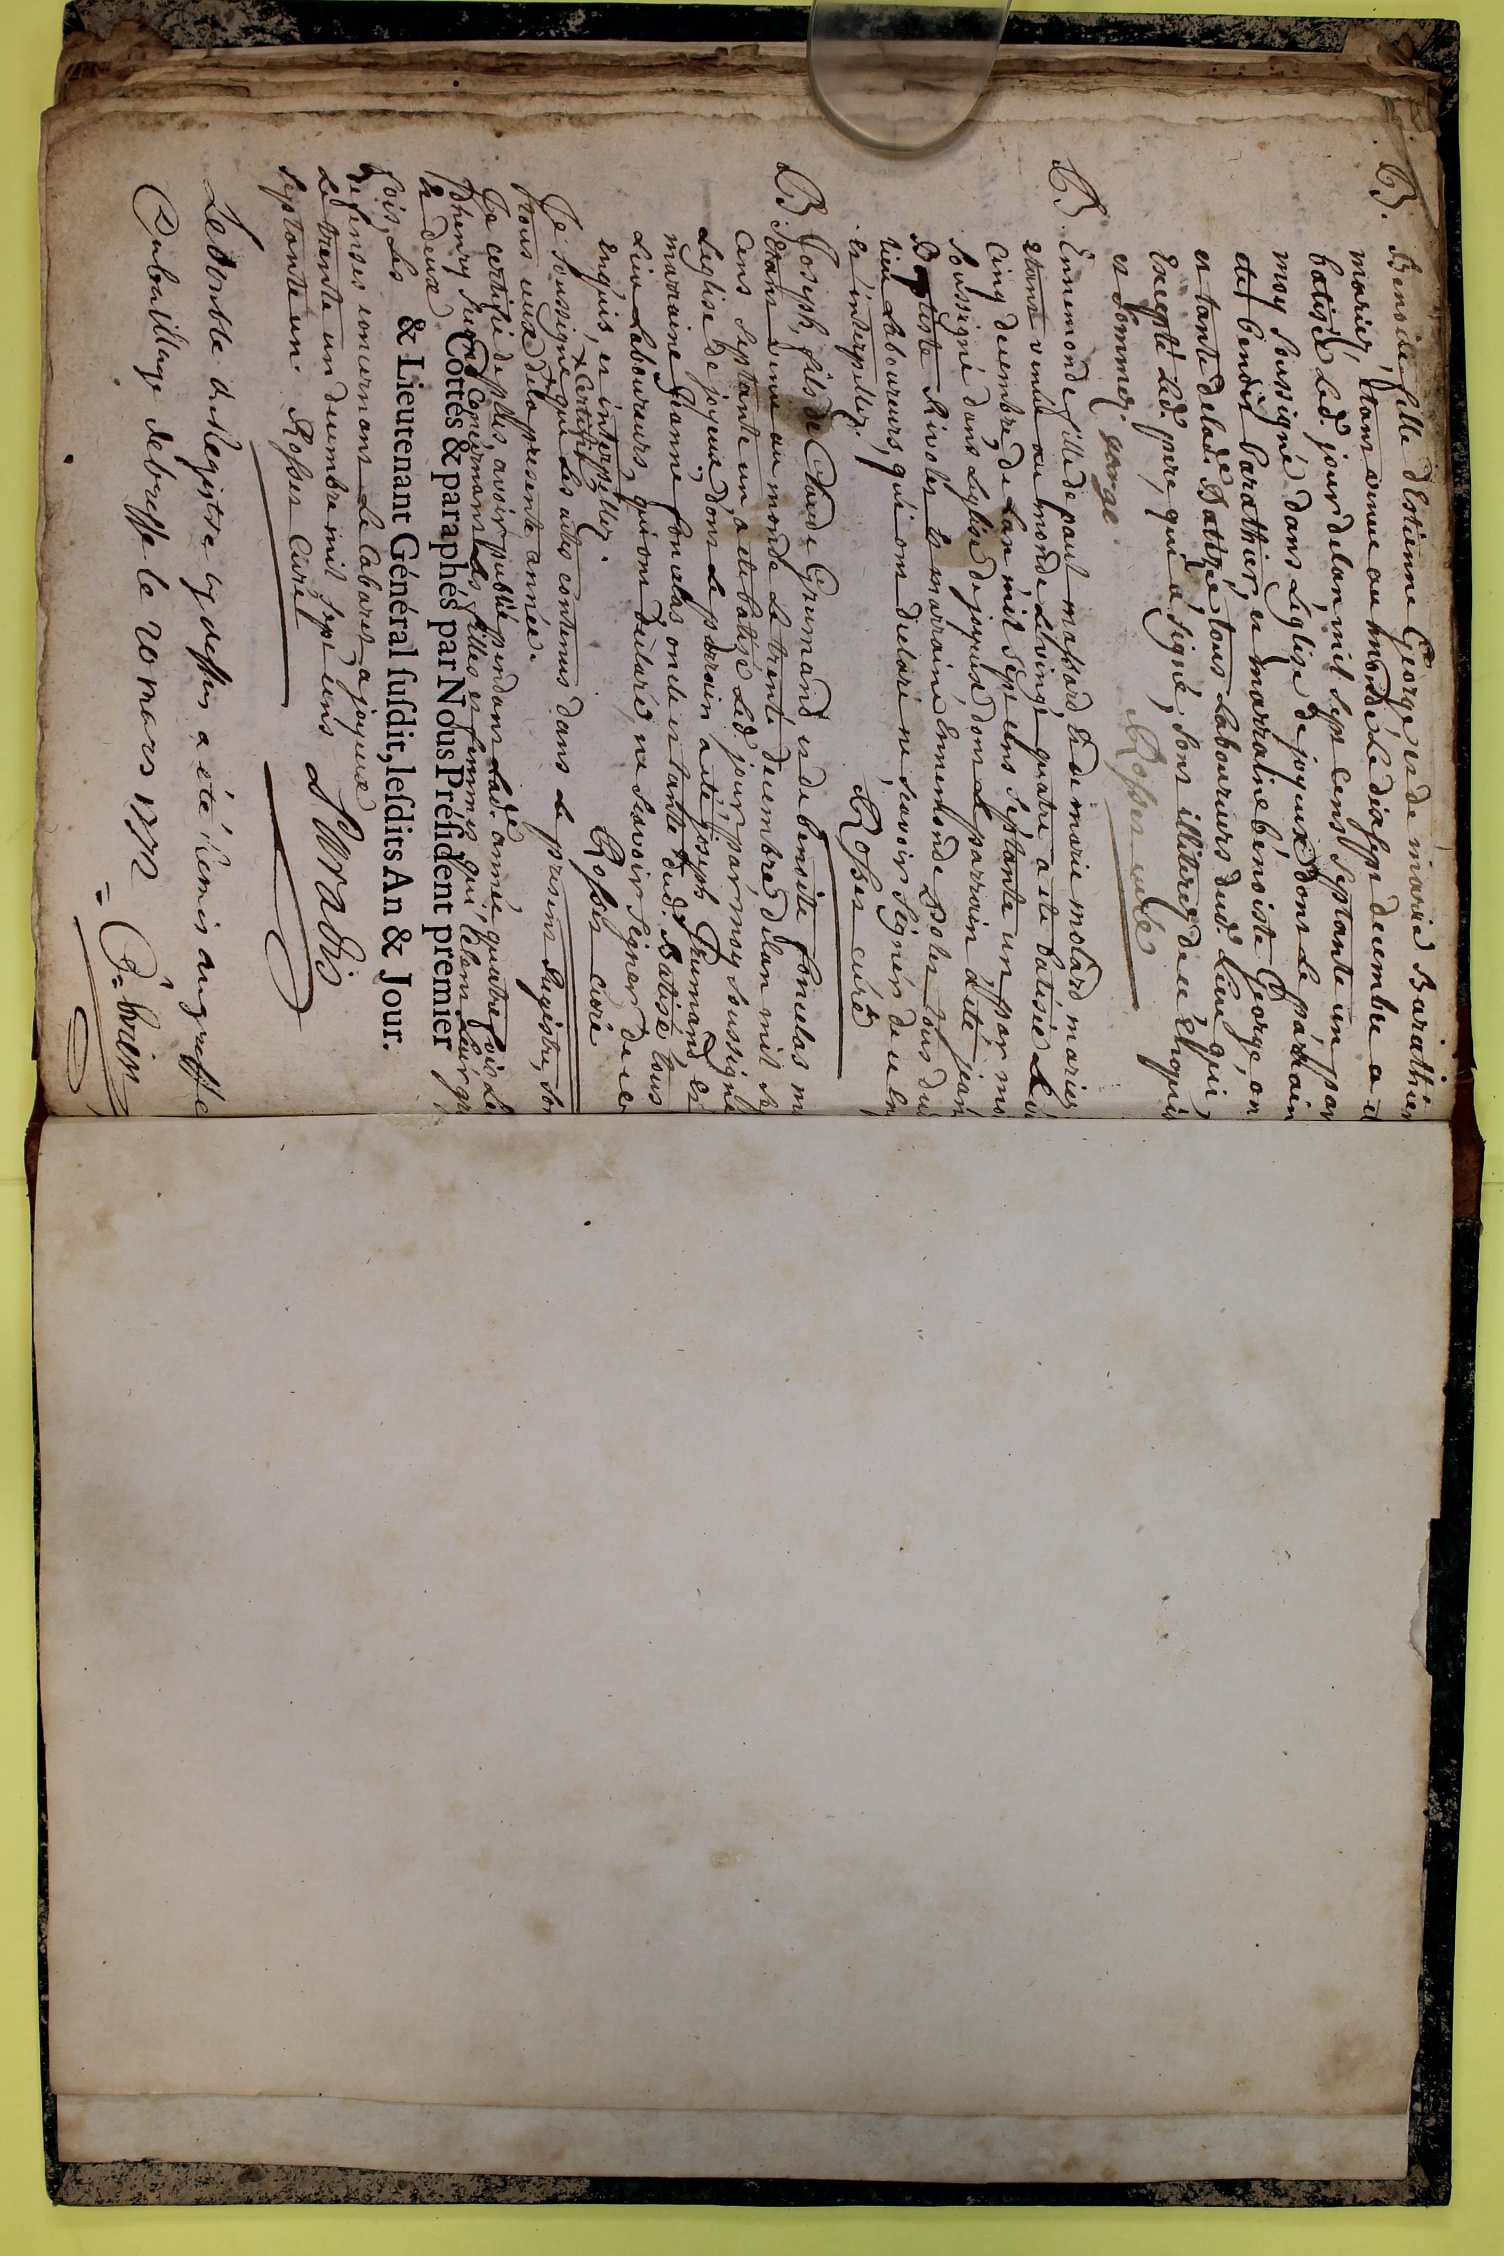 B. Benoite fille d'Estienne George et de marie Barathier
mariez, étant venue au monde le dixsept decembre a
batisée led. jour de lan mil sept cens septante un par
moy soussigné dans Leglise de joyeux dont le parrain
benoit barathier, et marraine benoiste George, on
et tante de lad. Batizée tous Laboureurs dud. Lieu qui
Excepté led. pere, qui a signé, sont illitérez de ce enquis
et sommez. george
Rosser curé
B. Ennemonde fille de paul massard Et de marie molard mariez
etant venue au monde le vingt quatre a eté batisée le
Cinq decembre de Lan mil sept cens septante un par mo
soussigné dans Leglise de joyeux dont le parrain a eté jean
Baptiste Rivolet Et marraine Ennemonde tous du
lieu Laboureurs, qui ont declaré ne sçavoir signer de ce en
et interpellez.
Rosser curé
B. Joseph, fils de Claude Grumand et de benoite foncelas m
étant venu au monde Le trente decembre de lan mil se
cens septante un, a eté batisé led. jour par moy soussigné
Leglise de joyeux dont Le parrain a eté joseph Grumand, et
marraine jeanne foncelas oncle et tante dud. Batisé tous
Lieu Laboureurs, qui ont declaré, ne sçavoir signer de ce
enquis, et interpellez.
Rosser curé
Je soussigné que Les actes contenus dans Le present Registre, son
x Certifie
tous ceux de la presente année.
Je certifie de plus, avoir publié pendant Lad. année quatre fois Le
d'henry second Concernant les filles et femmes qui, celent Leur gr
Cottés & paraphés par Nous Président premier
& deux
& Lieutenant Général susdit, lesdits An & Jour.
fois, Les
defenses concernant Le Cabaret a joyeux
Le trente un decembre mil sept cens
septante un. Rosser Curé
Le double du Registre cy dessus a été remis au greffe
du bailliage de bresse le 20 mars 1772